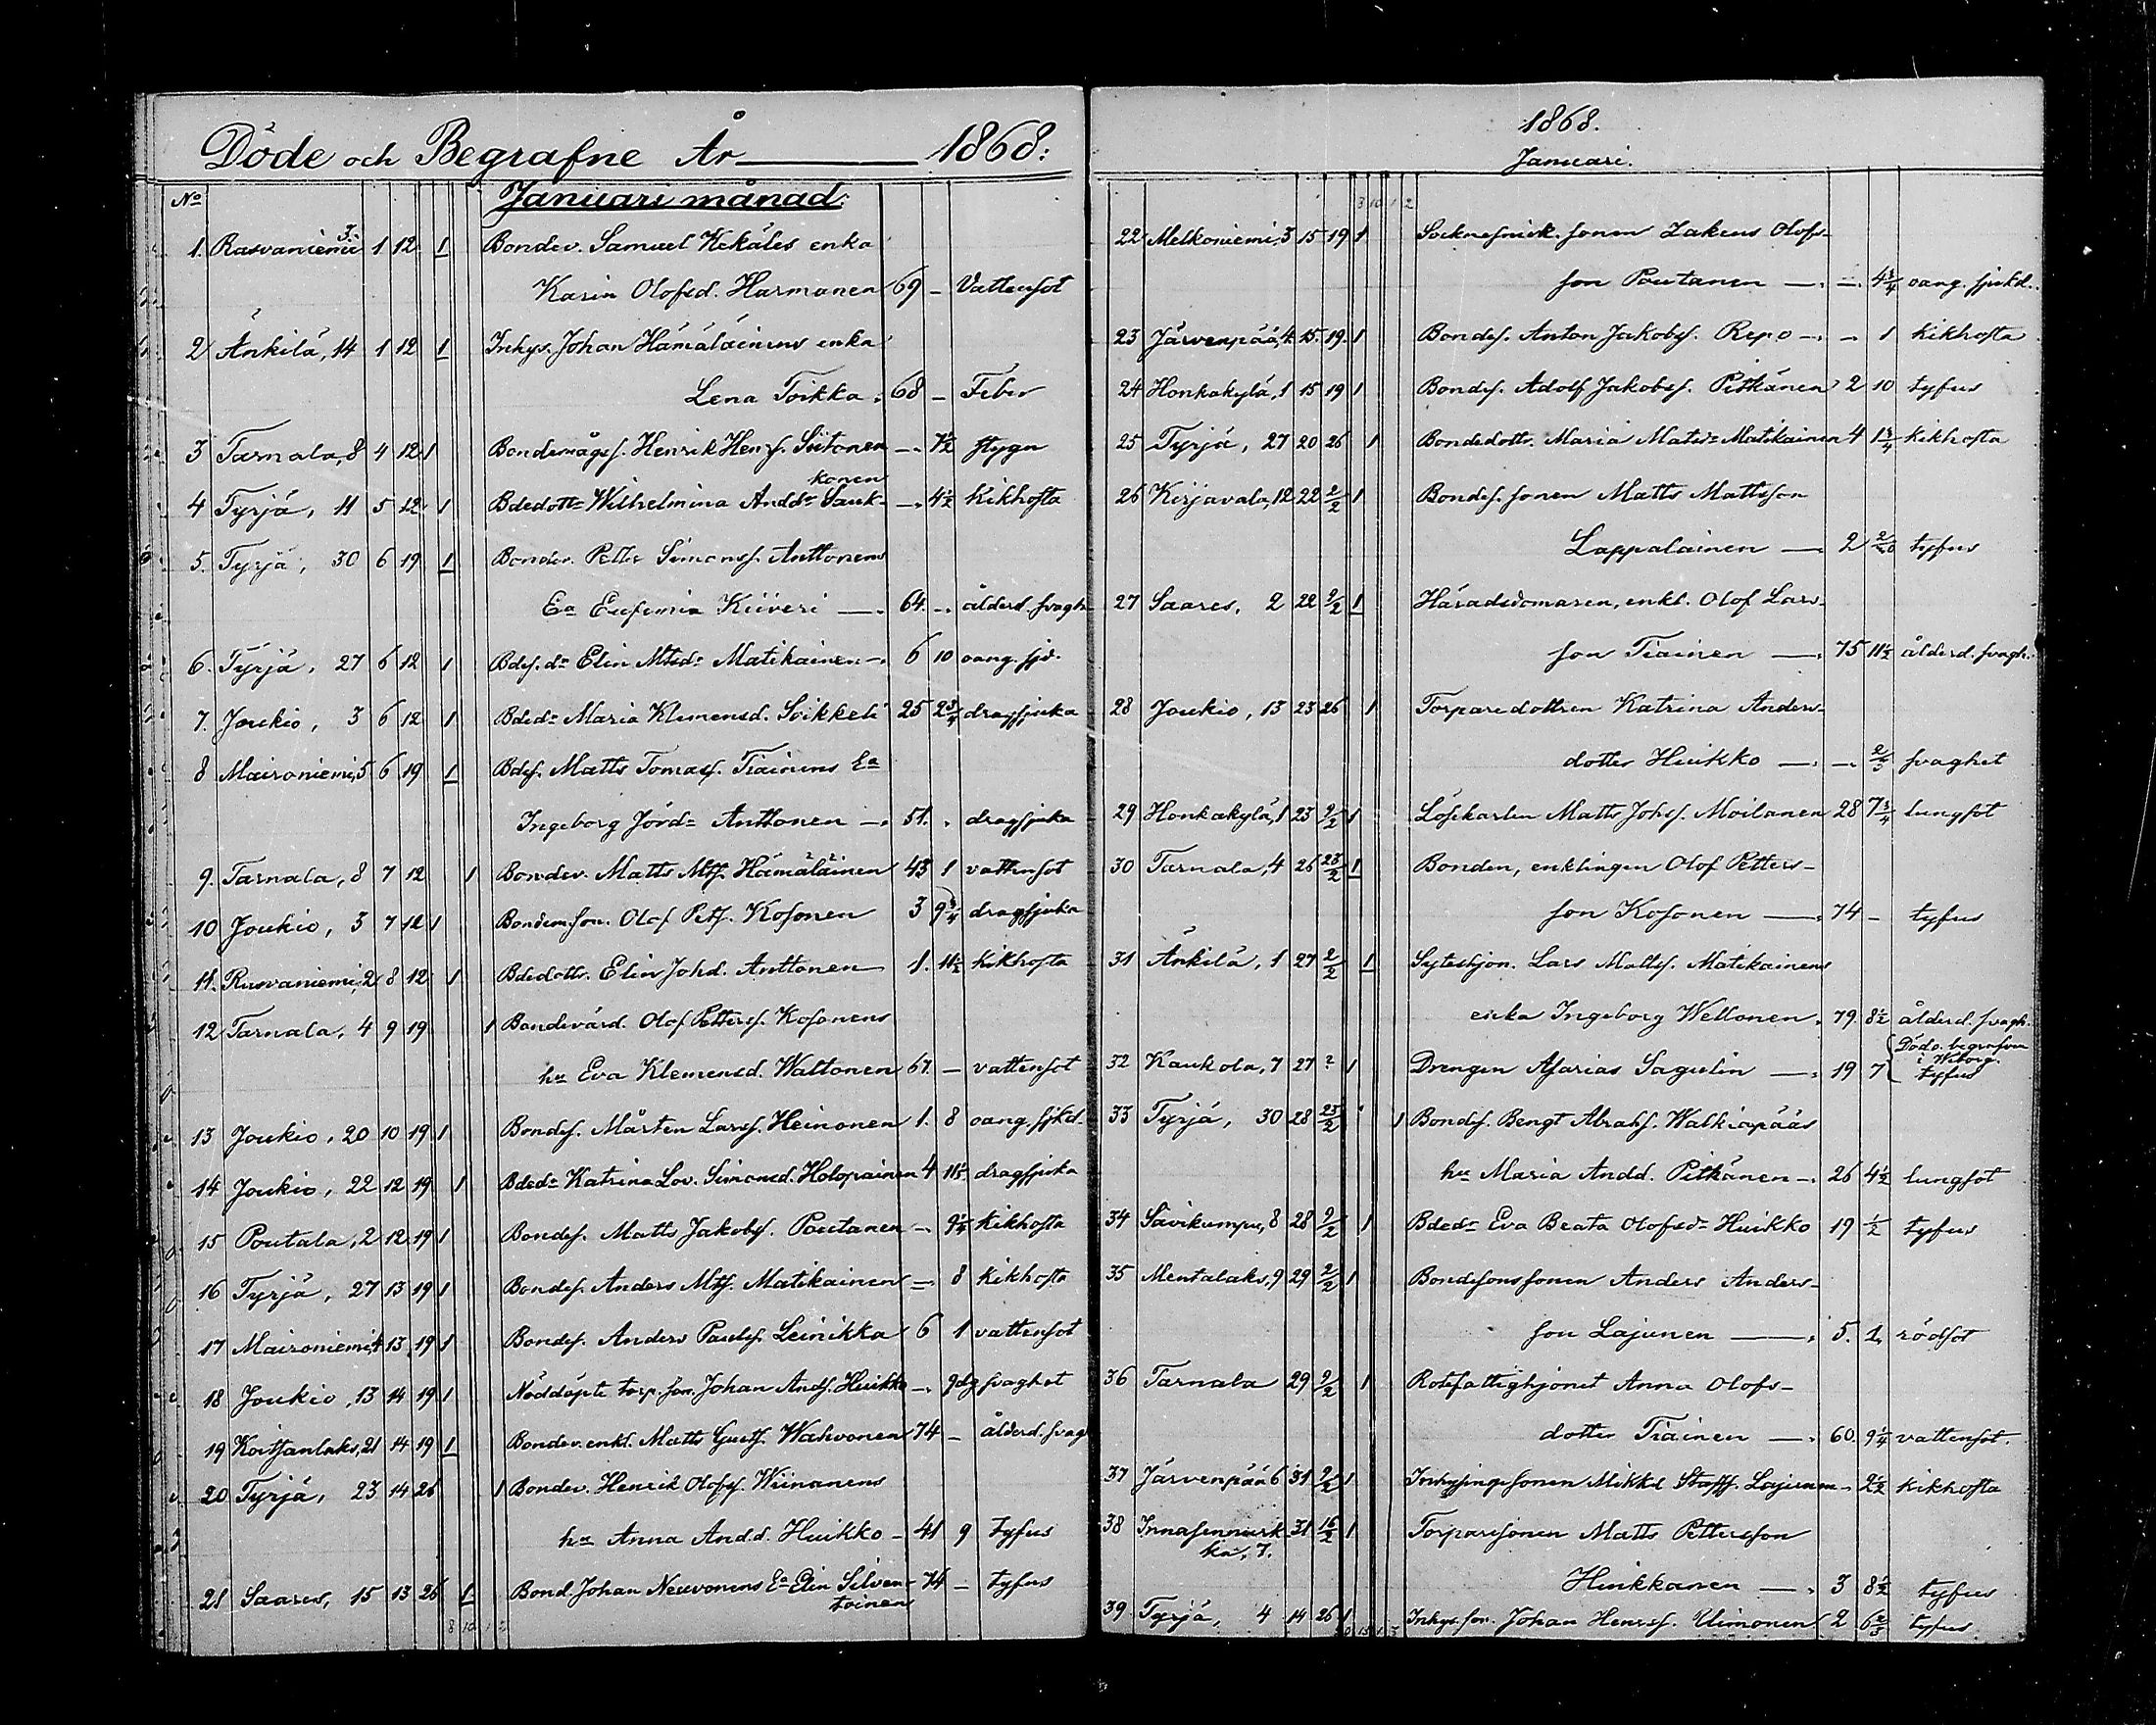 Döde och Begrafne År 1868:
No Januari månad:
1. Rasvaniemi 3. 1 12 1 Bondev. Samuel Kekäles enka
Karin Olofsd. Harmanen 69 - Vattensot
2 Änkilä, 14 1 12 1 Inhys. Johan Hämäläinens enka
Lena Toikka. 68 - Feber
3 Tarnala, 8 4 12 1 Bondemågs. Henrik Henrs. Siitonen - 7½ stygn
konen
4 Tyrjä, 11 5 12 1 Bdedottr Wilhelmina Andd. Sauk- - 4½ Kikhosta
5. Tyrjä, 30 6 19 1 Bondev. Petter Simonss. Anttonens
Ea Eufemia Kiiveri - 64. - ålderd. svagh
6. Tyrjä, 27 6 12 1 Bdes. dr Elin Mtsdr Matikainen - 6 10 oang. sjd.
7. Joukio, 3 6 12 1 Bdedr Maria Klemensd. Soikkeli 25 2¾ dragsjuka
8 Maironiemi, 5 6 19 1 Bdes. Matts Tomass. Tiainens Ea
Ingeborg Jörd. Anttonen - 51. . dragsjuka
9. Tarnala, 8 7 12 1 Bondev. Matts Mtss. Hämäläinen 43 1 vattensot
10 Joukio, 3 7 12 1 Bondemson. Olof Pets. Kosonen 3 9¾ dragsjuka
11. Rasvaniemi, 2 8 12 1 Bdedottr. Elin Johd. Anttonen 1. 11½ Kikhosta
12 Tarnala, 4 9 19 1 Bondevärd. Olof Petterss. Kosonens
hu Eva Klemensd. Waltonen 67. - vattensot
13 Joukio, 20 10 19 1 Bondes. Mårten Larss. Heinonen 1. 8 oang. sjkd.
14 Joukio, 22 12 19 1 Bdedr Katrina Lov. Simonsd. Holopainen 4 11½ dragsjuka
15 Poutala, 2 12 19 1 Bondes. Matts Jakobs. Poutanen - 9¼ Kikhosta
16 Tyrjä, 27 13 19 1 Bondes. Anders Mtss. Matikainen - 8 Kikhosta
17 Maironiemi, 4 13 19 1 Bondes. Anders Pauls. Leinikka 6 1 vattensot
18 Joukio, 13 14 19 1 Nöddöpte torp. son. Johan Ands. Huikko - 9dg svaghet
19 Koitsanlaks, 21 14 19 1 Bondev. enkl. Matts Gusts. Wahvonen 74 - ålderd. svag
20 Tyrjä, 23 14 26 1 Bondev. Henrik Olofss. Wiinanens
hu Anna Andd. Huikko - 41 9 tyfus
21 Saares, 15 13 26 1 Bond. Johan Neuvonens Ea Elin Silven- 74 - tyfus
toinen
8 10 1 2
1868.
Januari.
3 10 1 2
22 Melkoniemi, 3 15 19 1 Sockneskredd. sonen Zakeus Olofs-
son Poutanen - - 4¾ oang. sjukd.
23 Järvenpää, 4 15. 19. 1 Bondes. Anton Jakobs. Repo - - 1 kikhosta
24 Honkakylä, 1 15 19 1 Bondes. Adolf Jakobss. Pitkänen 2 10 tyfus
25 Tyrjä, 27 20 26 1 Bondedottr. Maria Matsdr Matikainen 4 1¾ kikhosta
26 Kirjavala, 12 22 2/2 1 Bondes. sonen Matts Mattsson
Lappalainen - 2 tyfus
27 Saares, 2 22 2/2 1 Häradsdomaren, enkl. Olof Lars-
son Tiainen - 75 11½ ålderd. svagh.
28 Joukio, 13 23 26 1 Torparedottren Katrina Anders-
dotter Huikko - - 2/3 svaghet
29 Honkakylä, 1 23 2/2 1 Löskarlen Matts Johss. Moilanen 28 7¾ lungsot
30 Tarnala, 4 26 23/2 1 Bonden, enklingen Olof Petters-
son Kosonen - 74 - tyfus
31 Änkilä, 1 27 2/2 1 Syteshjon. Lars Matts. Matikainens
enka Ingeborg Weltonen. 79 8½ ålderd. svagh.
32 Kaukola, 7 27 ? 1 Drengen Asarias Sagulin - 19 7 Död o. begrafven i Wiborg. tyfus
33 Tyrjä, 30 28 23/2 1 Bondes. Bengt Abrahs. Walkiapääs
hu Maria Andd. Pitkänen - 26 4½ lungsot
34 Savikumpu, 8 28 9/2 1 Bdedr Eva Beata Olofsdr Huikko 19 ½ tyfus
35 Mentalaks, 9 29 2/2 1 Bondesonssonen Anders Anders-
son Lajunen - 5. 1. rödsot
36 Tarnala 29 9/2 1 Rotefattighjonet Anna Olofs-
dotter Tiainen - 60. 9¼ vattensot.
37 Järvenpää 6 31 9/2 1 Inhysingssonen Mikkel Staffs. Lajunen - 2½ kikhosta
38 Innasennurk- 31 16/2 1 Torparesonen Matts Pettersson
ka, 7.
Huikkanen - 3 8½ tyfus
39 Tyrjä, 4 14 26 1 Inhys son. Johan Henrss. Uimonen 2 6⅔ tyfus